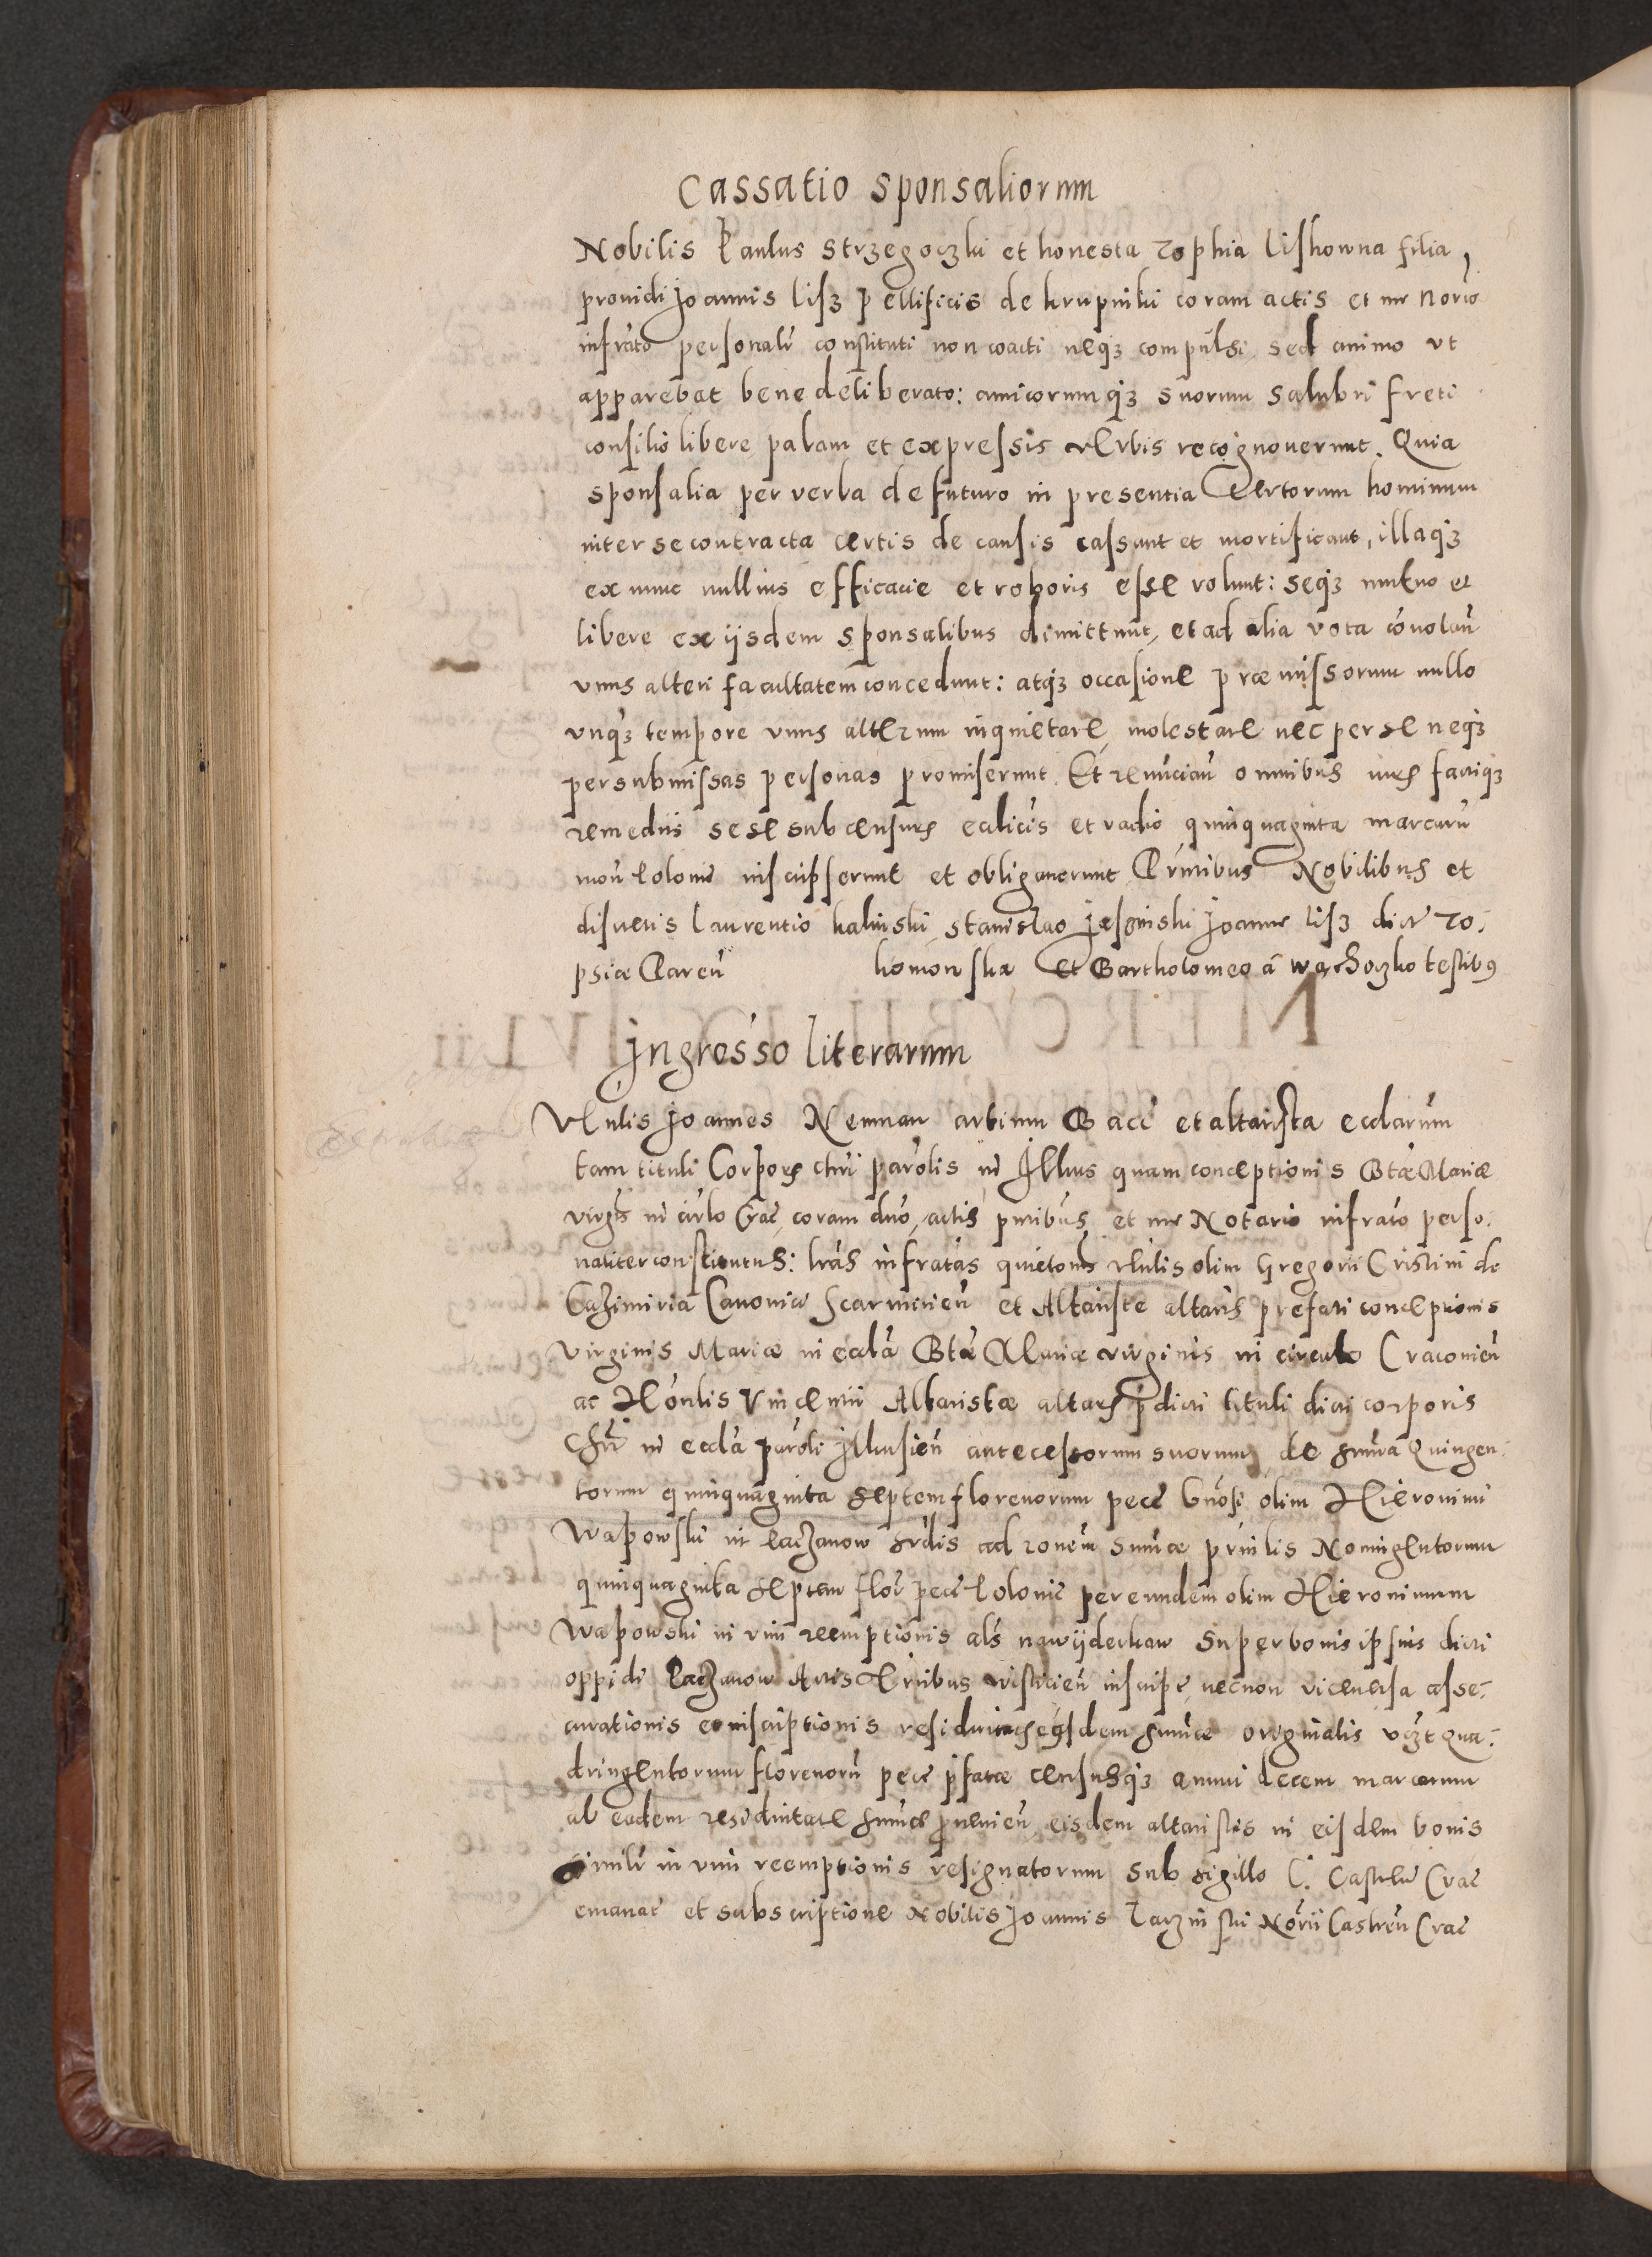 Cassatio sponsaliorum
Nobilis Paulus Strzegoczki et honesta Zophia Lishowna filia
prouidi Joannis Lisz pellificis de krupniki coram actis et me norio
infrato personalr constituti non coacti neqz compulsi sed animo vt
apparebat bene deliberato: amicorumqz suorum salubri freti
consilio libere palam et expressis verbis recognouerunt. Quia
sponsalia per verba de futuro in presentia certorum hominum
inter se contracta certis de causis cassant et mortificant, illaqz
ex nunc nullius efficacie et roboris esse volunt: seqz mutuo et
libere ex ijsdem sponsalibus dimittunt, et ad alia vota conolan
vnus alteri facultatem concedunt: atqz occasione præmissorum nullo
vnqz tempore vnus alterum inquietare, molestare nec per se neqz
per submissas personas promiserunt Et renunciau omnibus iures factiqz
remediis sese sub censures ecclicis et vadio quinquaginta marcaru
mon Polonie inscripserunt et obligauerunt Prntibus Nobilibus et
discretis Laurentio kalinski Stanislao Joanne Lisz dicte Zo.
phiæ Paren komonskæ et Bartholomeo à wąchoczko testibus
Ingrosso literarum
Vlnlis Joannes Neuman artium Bacc et altarista ecclarum
tam tituli Corpores chri parolis in Ilkus quam conceptionis Btæ Mariæ
virgis in circlo Crac, coram duo, actis prntibus et me Notario infrato perso.
naliter constitutus: lras infratas quietonis vlnlis olim Gregorii Cristini de
Cazimiria Canonici Scarmirien et Altariste altaris prefati conceptionis
Virginis Mariæ in eccla Btæ Mariæ virginis in circulo Cracouien
ac Honlis Vincentii Altaristæ altares pdicti tituli dicti corporis
Chri in eccla paroli Ilkusien antecessorum suorum de summa Quingen.
torum quinquaginta septem florenorum pecc Gnosi olim Hieronimi
Wapowski in Paczanow hrdis ad ronem summæ prnlis Noningentorum
quinquaginta septem flor pecc Polonic per eundem olim Hieronimum
Wapowski in vim reemptionis als nawyderkaw super bonis ipsius dicti
oppidi Paczanow Actis Trnibus wislicien inscripte, necnon viceuersa asse.
curationis et inscriptionis residuitates eiusdem summæ originalis vizt Qua.
dringentorum florenoru pecc pfatæ censusqz annui decem marcarum
ab eadem residuitate summe prouenien eisdem altaristis in eisdem bonis
similr in vim reemptionis resignatorum sub sigillo C. Castrens Crac
emanat et subscriptione Nobilis Joannis Norii Castren Crac